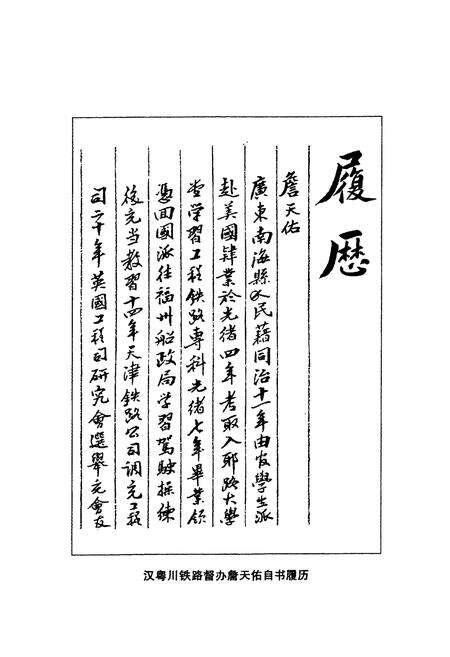 履歷
詹天佑
廣東南海縣人民籍同治十一年由幼學生派
赴美國肄業於光緒四年考取入耶路大學
堂學習工程鉄路專科光緒七年畢業領
憑回國派往福州船政局学習駕駛操練
後充当教習十四年天津鉄路公司調充工程
司二十年英國工程司研究會選舉充會友
汉粤川铁路督办詹天佑自书履历